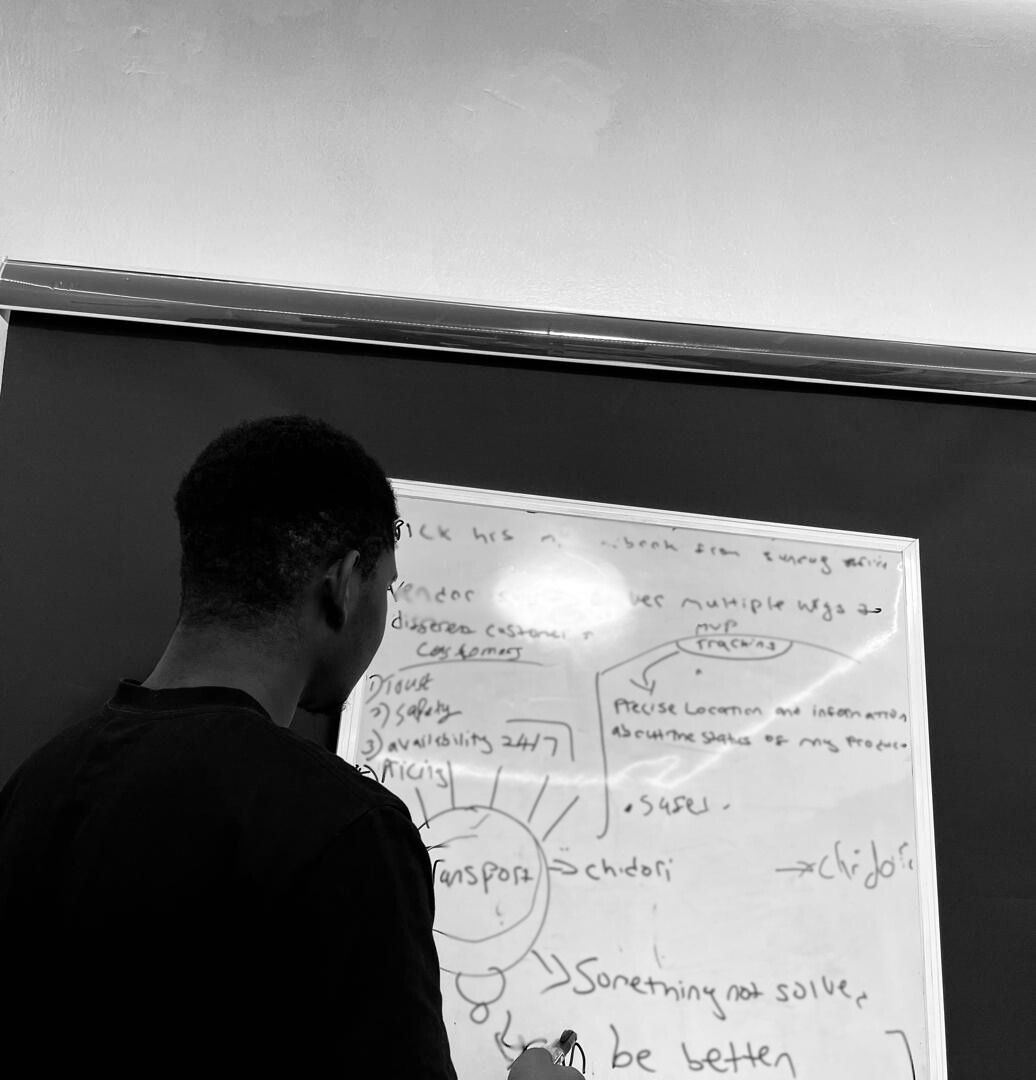 hrs from
vendor multiple wigs to
different customers
Customers
MVP
Tracking
1) Trust
2) Safety
3) availability 24/7
Pricing
Precise Location and information
about the status of my Produc
• Safer
Transport
chidori
chidori
Something not solve
be better